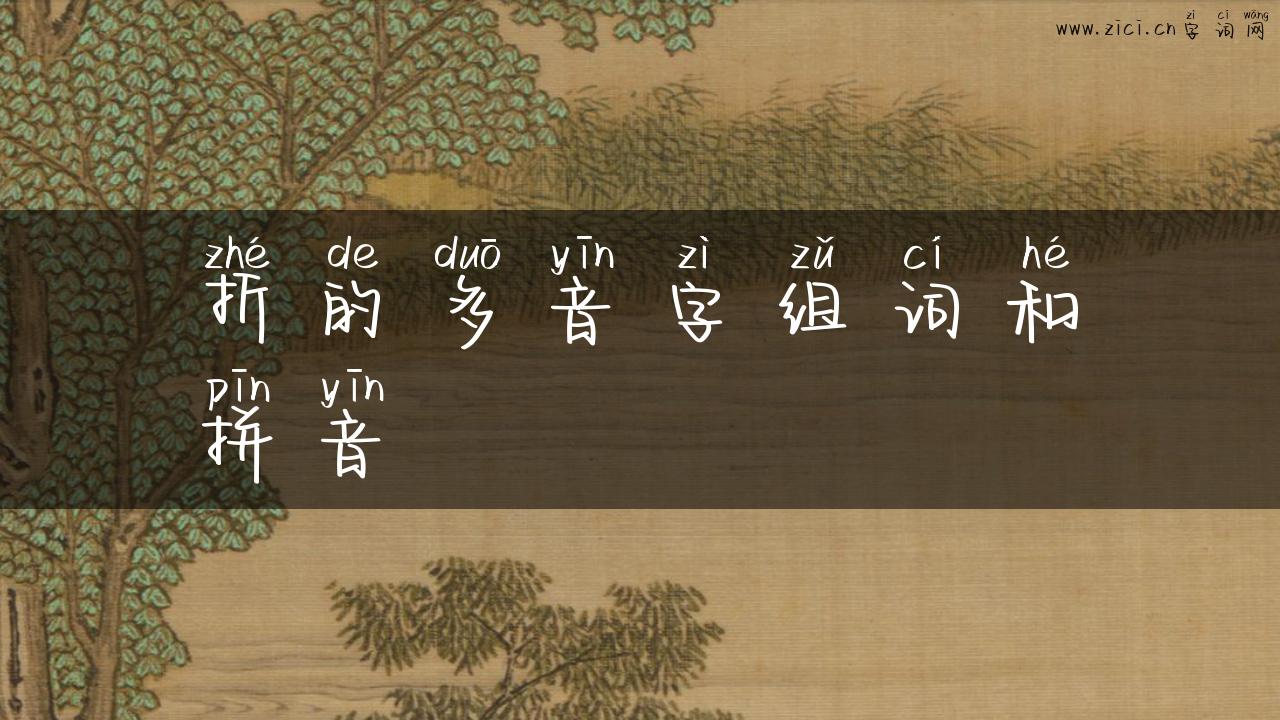 zì cí wǎng
www.zici.cn字词网
zhé de duō yīn zì zǔ cí hé
折的多音字组词和
pīn yīn
拼音